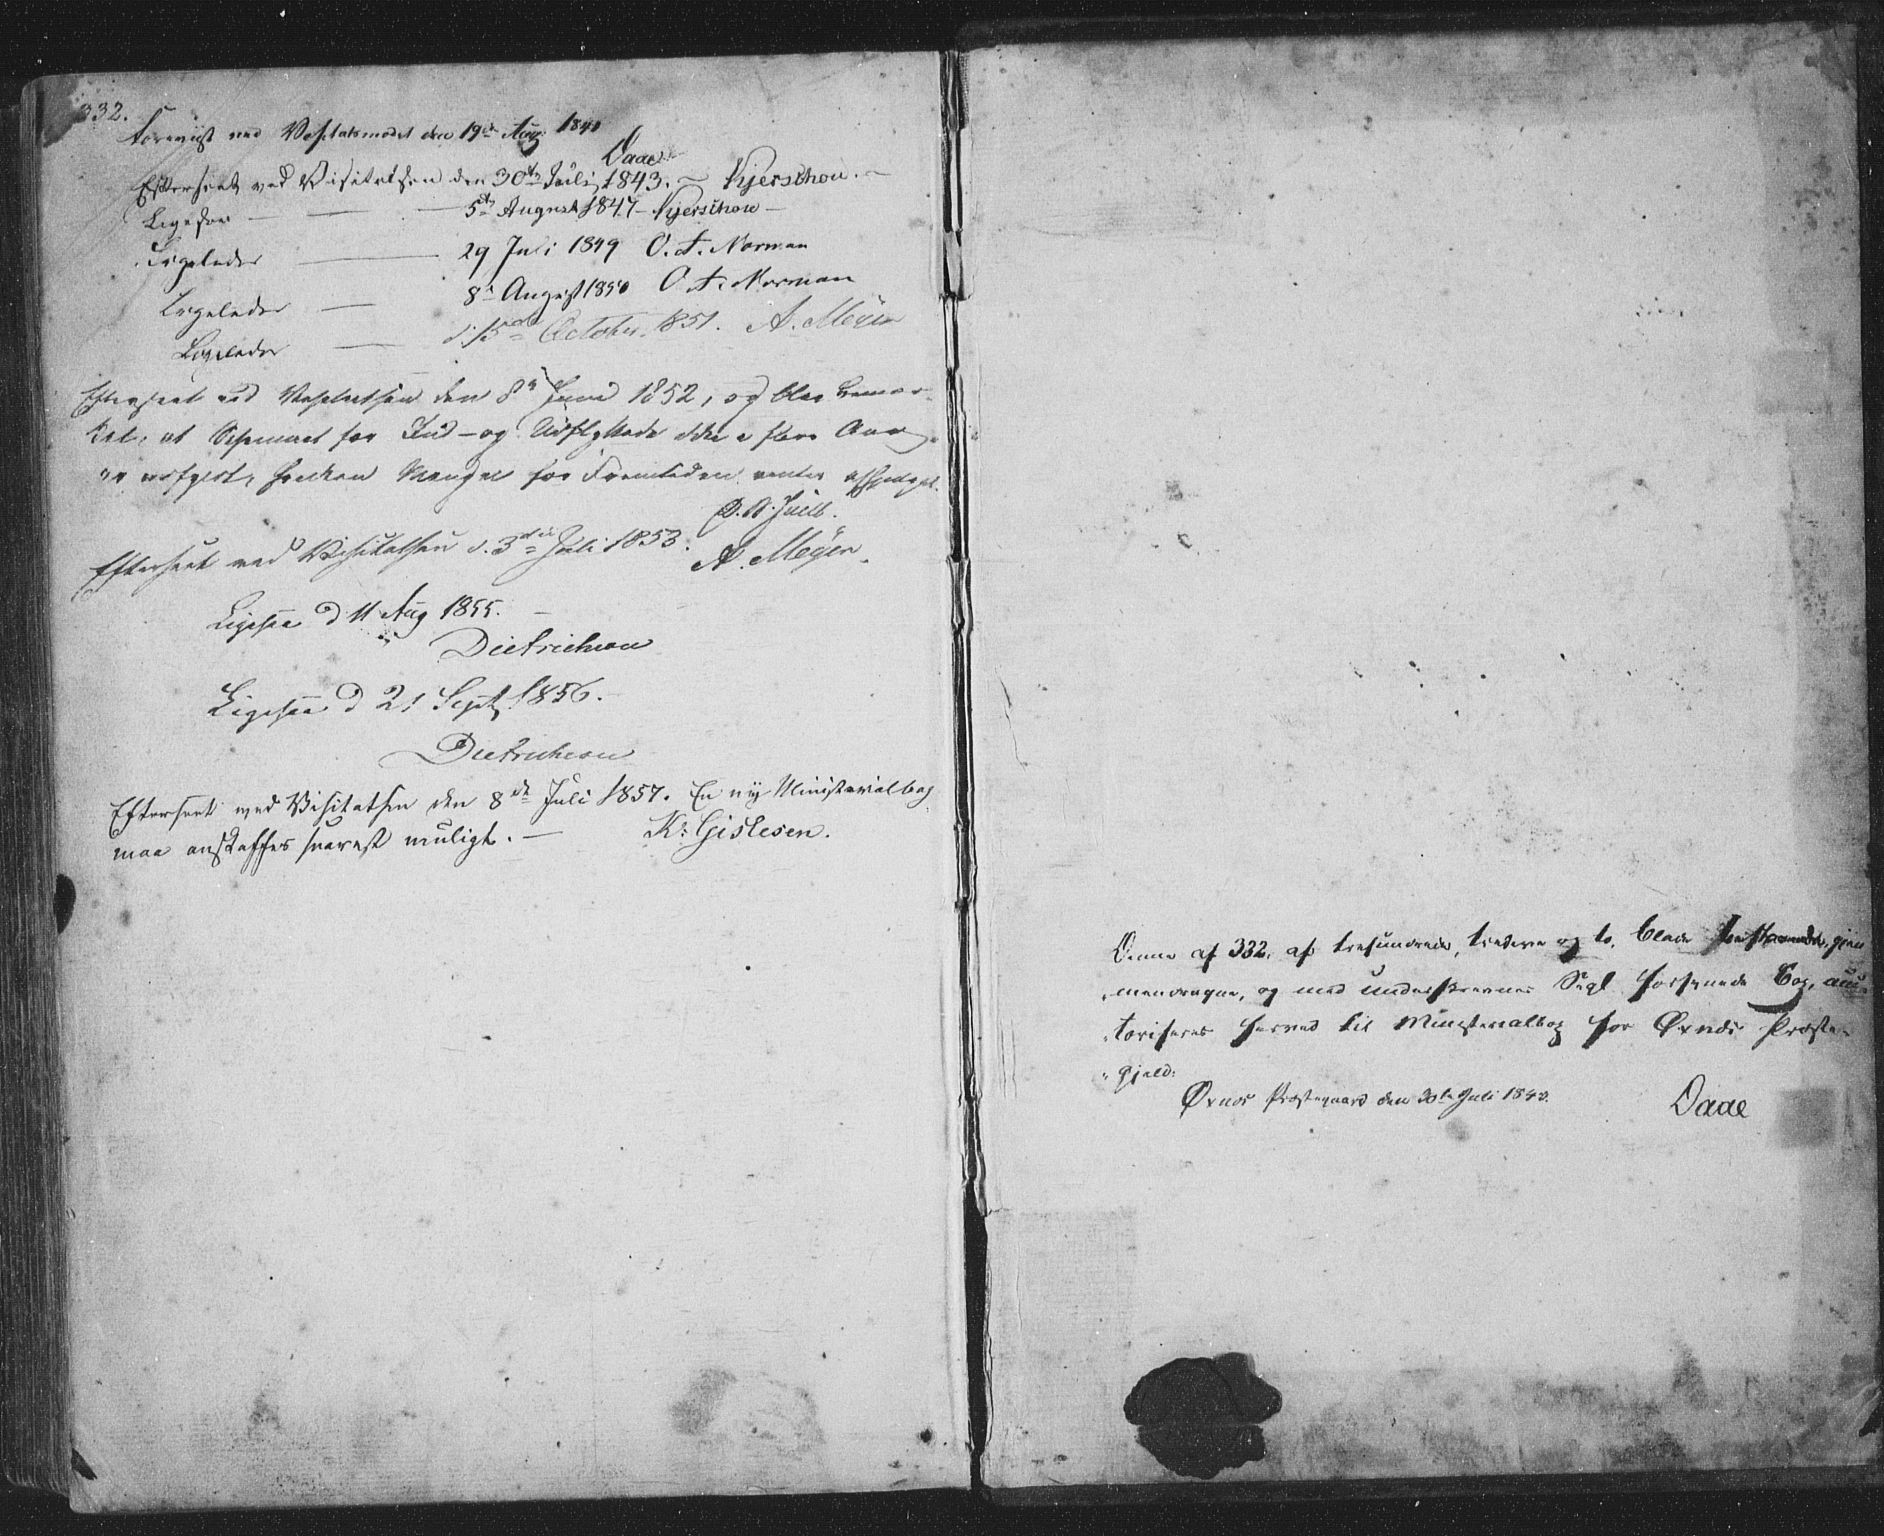 332.
Forevist ved Visitatsmødet den 19de Aug. 1840
Daae
Efterseet ved Visitatsen den 30te Juli 1843. ~ Kjerschow. ~
Ligesaa — — — 5te August 1847 – Kjerschow –
Ligeledes — 29 Juli 1849 O. T. Norman
Ligeledes — 8de August 1850 O. T. Norman
Ligeledes — d. October 1851. A. Meyer
Efterseet ved Visitatsen den 8de Juni 1852, og blev bemær-
ket, at Schemaet for Ind- og Udflyttede ikke i flere Aar
er udfyldt, hvilken Mangel for Fremtiden ventes afhjulpet.
D. B. Juell.
Efterseet ved Visitatsen d. 3die Juli 1853. A. Meyer.
Ligesaa d 11 Aug 1855. —
Dietrichson
Ligesaa d 21 Sept 1856.
Dietrichson
Efterseet ved Visitatsen den 8de Juli 1857. En ny Ministerialbog
maa anskaffes snarest muligt. — K: Gislesen.
Denne af 332, af trehundrede, tredive og to, Blade bestaaende, gjen-
nemdragne, og med underskrevnes Segl forsynede Bog, au-
toriseres herved til Ministerialbog for Øxnæs Præste-
gjeld.
Øxnæs Præstegaard den 30te Juli 1840.
Daae